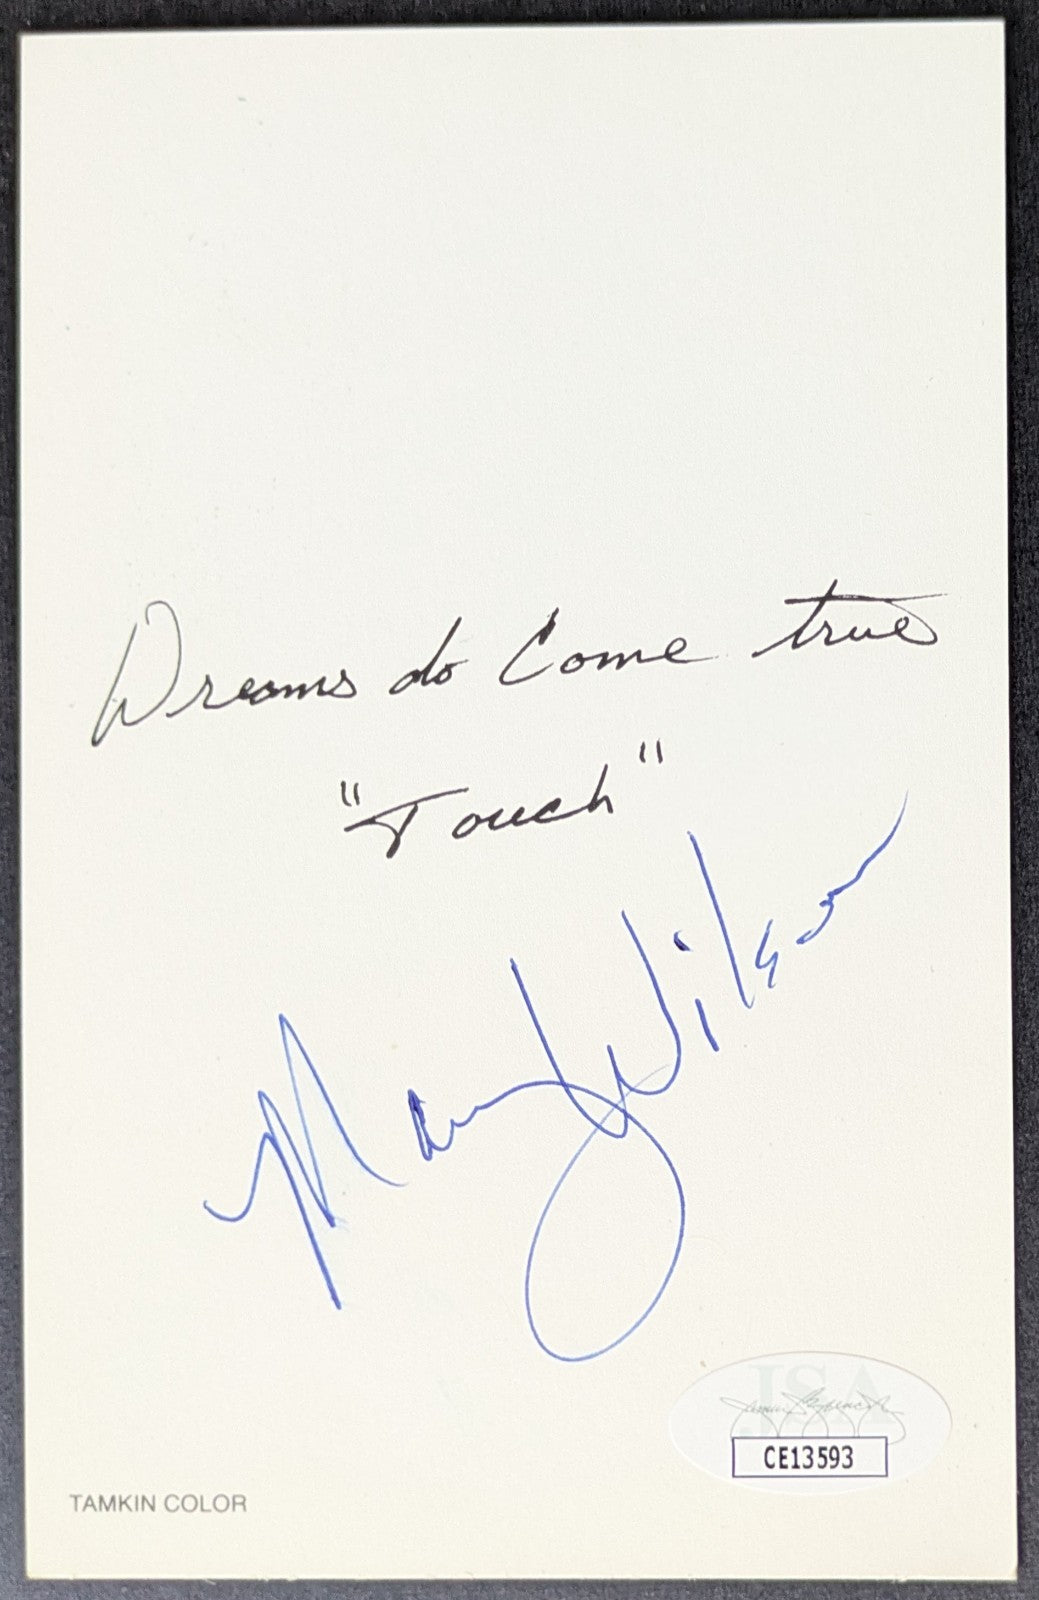 Dreams do Come true
"Touch"
Mary Wilson
JSA
CE13593
TAMKIN COLOR